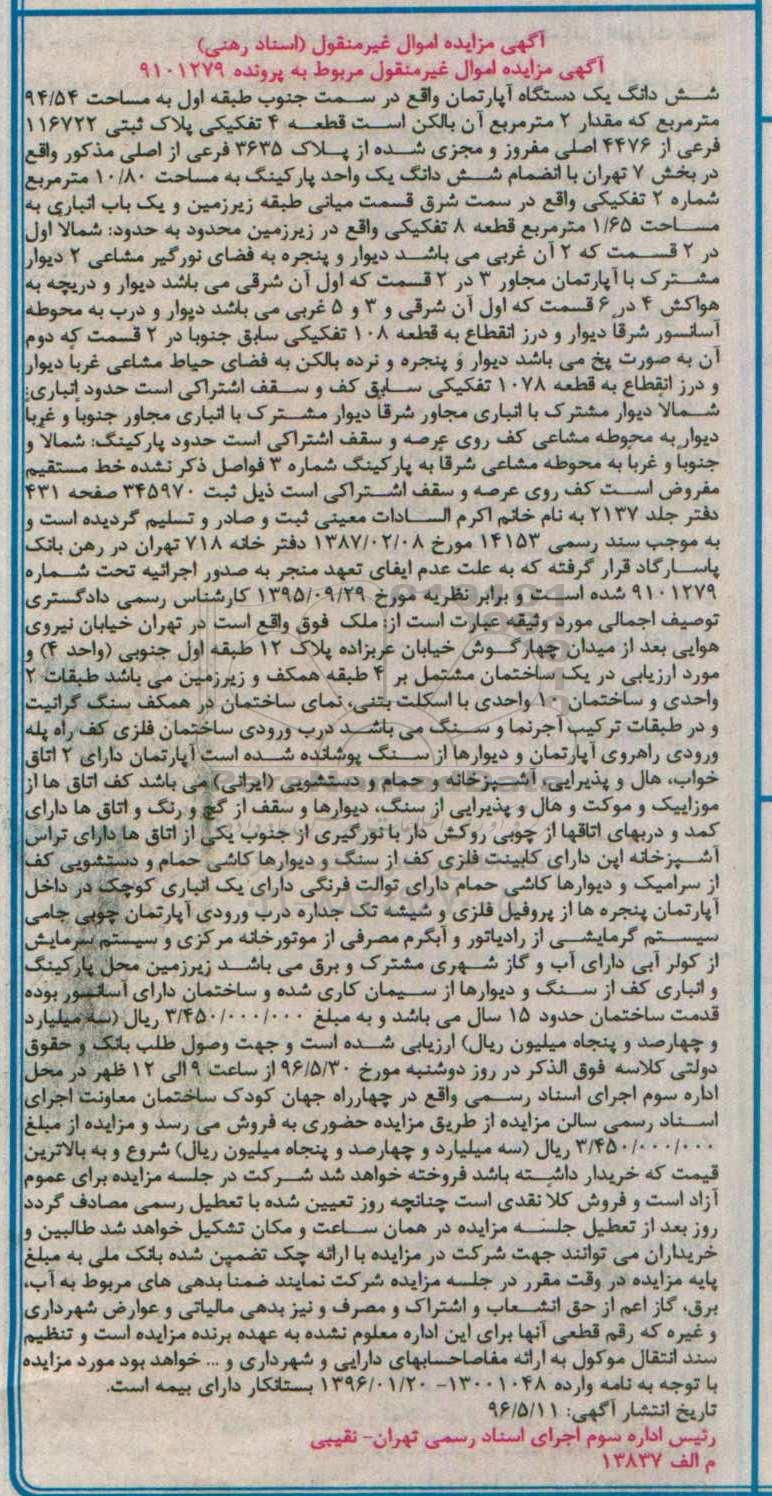 آگهی مزایده اموال غیرمنقول (اسناد رهنی)
آگهی مزایده اموال غیرمنقول مربوط به پرونده ۹۱۰۱۲۷۹
شش دانگ یک دستگاه آپارتمان واقع در سمت جنوب طبقه اول به مساحت ۹۴/۵۴
مترمربع که مقدار ۲ مترمربع آن بالکن است قطعه ۴ تفکیکی پلاک ثبتی ۱۱۶۷۲۲
فرعی از ۴۴۷۶ اصلی مفروز و مجزی شده از پلاک ۳۶۳۵ فرعی از اصلی مذکور واقع
در بخش ۷ تهران با انضمام شش دانگ یک واحد پارکینگ به مساحت ۱۰/۸۰ مترمربع
شماره ۲ تفکیکی واقع در سمت شرق قسمت میانی طبقه زیرزمین و یک باب انباری به
مساحت ۱/۶۵ مترمربع قطعه ۸ تفکیکی واقع در زیرزمین محدود به حدود: شمالا اول
در ۲ قسمت که ۲ آن غربی می باشد دیوار و پنجره به فضای نورگیر مشاعی ۲ دیوار
مشترک با آپارتمان مجاور ۳ در ۲ قسمت که اول آن شرقی می باشد دیوار و دریچه به
هواکش ۴ در ۶ قسمت که اول آن شرقی و ۳ و ۵ غربی می باشد دیوار و درب به محوطه
آسانسور شرقاً دیوار و درز انقطاع به قطعه ۱۰۸ تفکیکی سابق جنوبا در ۲ قسمت که دوم
آن به صورت پخ می باشد دیوار و پنجره و نرده بالکن به فضای حیاط مشاعی غرباً دیوار
و درز انقطاع به قطعه ۱۰۷۸ تفکیکی سابق کف و سقف اشتراکی است حدود انباری:
شمالا دیوار مشترک با انباری مجاور شرقا دیوار مشترک با انباری مجاور جنوبا و غربا
دیوار به محوطه مشاعی کف روی عرصه و سقف اشتراکی است حدود پارکینگ: شمالا و
جنوبا و غربا به محوطه مشاعی شرقا به پارکینگ شماره ۳ فواصل ذکر نشده خط مستقیم
مفروض است کف روی عرصه و سقف اشتراکی است ذیل ثبت ۳۴۵۹۷۰ صفحه ۴۳۱
دفتر جلد ۲۱۳۷ به نام خانم اکرم السادات معینی ثبت و صادر و تسلیم گردیده است و
به موجب سند رسمی ۱۴۱۵۳ مورخ ۱۳۸۷/۰۲/۰۸ دفتر خانه ۷۱۸ تهران در رهن بانک
پاسارگاد قرار گرفته که به علت عدم ایفای تعهد منجر به صدور اجرائیه تحت شماره
۹۱۰۱۲۷۹ شده است و برابر نظریه مورخ ۱۳۹۵/۰۹/۲۹ کارشناس رسمی دادگستری
توصیف اجمالی مورد وثیقه عبارت است از: ملک فوق واقع است در تهران خیابان نیروی
هوایی بعد از میدان چهارگوش خیابان عربزاده پلاک ۱۲ طبقه اول جنوبی (واحد ۴) و
مورد ارزیابی در یک ساختمان مشتمل بر ۴ طبقه همکف و زیرزمین می باشد طبقات ۲
واحدی و ساختمان ۱۰ واحدی با اسکلت بتنی، نمای ساختمان در همکف سنگ گرانیت
و در طبقات ترکیب آجرنما و سنگ می باشد درب ورودی ساختمان فلزی کف راه پله
ورودی راهروی آپارتمان و دیوارها از سنگ پوشانده شده است آپارتمان دارای ۲ اتاق
خواب، هال و پذیرایی، آشپزخانه و حمام و دستشویی (ایرانی) می باشد کف اتاق ها از
موزاییک و موکت و هال و پذیرایی از سنگ، دیوارها و سقف از گچ و رنگ و اتاق ها دارای
کمد و دربهای اتاقها از چوبی روکش دار با نورگیری از جنوب یکی از اتاق ها دارای تراس
آشپزخانه اپن دارای کابینت فلزی کف از سنگ و دیوارها کاشی حمام و دستشویی کف
از سرامیک و دیوارها کاشی حمام دارای توالت فرنگی دارای یک انباری کوچک در داخل
آپارتمان پنجره ها از پروفیل فلزی و شیشه تک جداره درب ورودی آپارتمان چوبی جامی
سیستم گرمایشی از رادیاتور و آبگرم مصرفی از موتورخانه مرکزی و سیستم سرمایش
از کولر آبی دارای آب و گاز شهری مشترک و برق می باشد زیرزمین محل پارکینگ
و انباری کف از سنگ و دیوارها از سیمان کاری شده و ساختمان دارای آسانسور بوده
قدمت ساختمان حدود ۱۵ سال می باشد و به مبلغ ۳/۴۵۰/۰۰۰/۰۰۰ ریال (سه میلیارد
و چهارصد و پنجاه میلیون ریال) ارزیابی شده است و جهت وصول طلب بانک و حقوق
دولتی کلاسه فوق الذکر در روز دوشنبه مورخ ۹۶/۵/۳۰ از ساعت ۹ الی ۱۲ ظهر در محل
اداره سوم اجرای اسناد رسمی واقع در چهارراه جهان کودک ساختمان معاونت اجرای
اسناد رسمی سالن مزایده از طریق مزایده حضوری به فروش می رسد و مزایده از مبلغ
۳/۴۵۰/۰۰۰/۰۰۰ ریال (سه میلیارد و چهارصد و پنجاه میلیون ریال) شروع و به بالاترین
قیمت که خریدار داشته باشد فروخته خواهد شد شرکت در جلسه مزایده برای عموم
آزاد است و فروش کلا نقدی است چنانچه روز تعیین شده با تعطیل رسمی مصادف گردد
روز بعد از تعطیل جلسه مزایده در همان ساعت و مکان تشکیل خواهد شد طالبین و
خریداران می توانند جهت شرکت در مزایده با ارائه چک تضمین شده بانک ملی به مبلغ
پایه مزایده در وقت مقرر در جلسه مزایده شرکت نمایند ضمنا بدهی های مربوط به آب،
برق، گاز اعم از حق انشعاب و اشتراک و مصرف و نیز بدهی مالیاتی و عوارض شهرداری
و غیره که رقم قطعی آنها برای این اداره معلوم نشده به عهده برنده مزایده است و تنظیم
سند انتقال موکول به ارائه مفاصاحسابهای دارایی و شهرداری و ... خواهد بود مورد مزایده
با توجه به نامه وارده ۱۳۰۰۱۰۴۸- ۱۳۹۶/۰۱/۲۰ بستانکار دارای بیمه است.
تاریخ انتشار آگهی: ۹۶/۵/۱۱
رئیس اداره سوم اجرای اسناد رسمی تهران- نقیبی
م الف ۱۳۸۳۷